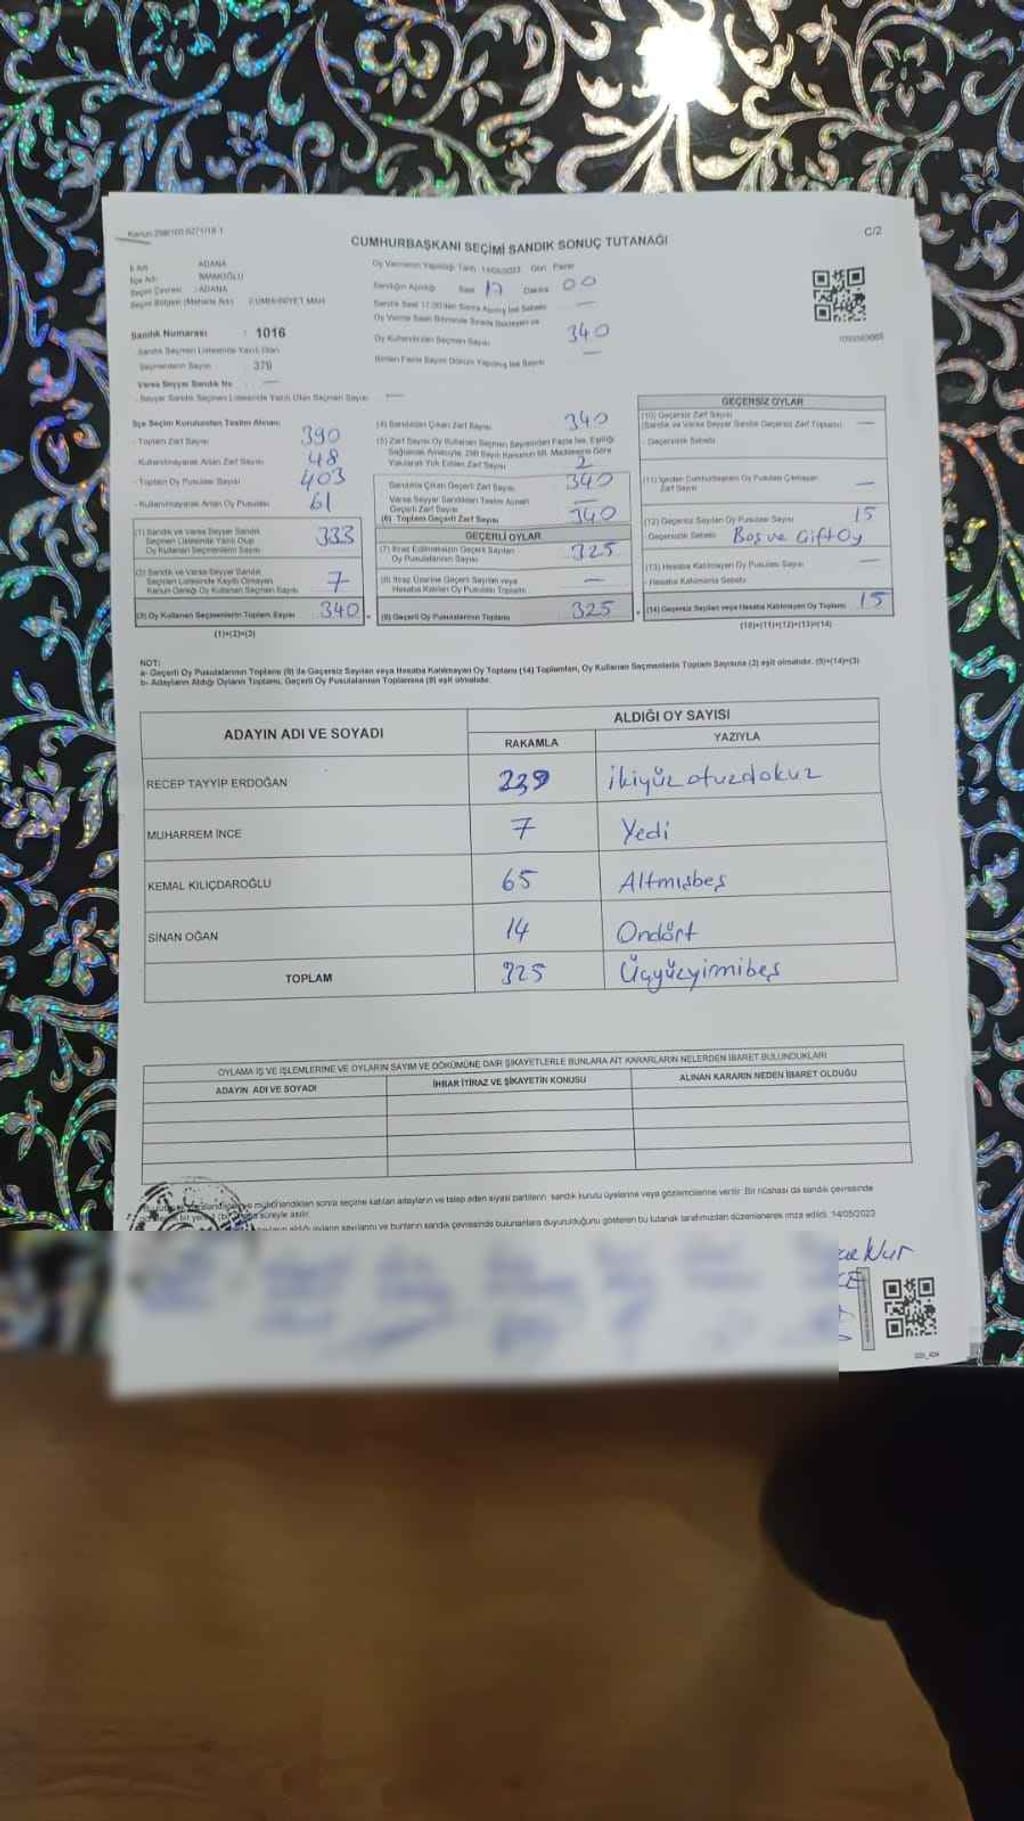 CUMHURBAŞKANI SEÇİMİ SANDIK SONUÇ TUTANAĞI
C/2
İl Adı : ADANA
İlçe Adı : İMAMOĞLU
Seçim Çevresi : ADANA
Seçim Bölgesi (Mahalle Adı) : CUMHURİYET MAH
Sandık Numarası : 1016
Sandık Seçmen Listesinde Yazılı Olan
Seçmenlerin Sayısı 379
Varsa Seyyar Sandık No —
- Seyyar Sandık Seçmen Listesinde Yazılı Olan Seçmen Sayısı —
Oy Vermenin Yapıldığı Tarih 14/05/2023 Gün Pazar
Sandığın Açıldığı Saat 17 Dakika 00
Oy Kullandırılan Seçmen Sayısı 340
İlçe Seçim Kurulundan Teslim Alınan;
- Toplam Zarf Sayısı 390
- Kullanılmayarak Artan Zarf Sayısı 48
- Toplam Oy Pusulası Sayısı 403
- Kullanılmayarak Artan Oy Pusulası 61
(1) Sandık ve Varsa Seyyar Sandık
Seçmen Listesinde Yazılı Olup
Oy Kullanan Seçmenlerin Sayısı 333
(2) Sandık ve Varsa Seyyar Sandık
Seçmen Listesinde Kayıtlı Olmayan
Kanun Gereği Oy Kullanan Seçmen Sayısı 7
(3) Oy Kullanan Seçmenlerin Toplam Sayısı 340
(1)+(2)=(3)
(4) Sandıktan Çıkan Zarf Sayısı 340
(5) Zarf Sayısı Oy Kullanan Seçmen Sayısından Fazla İse, Eşitliği
Sağlamak Amacıyla, 298 Sayılı Kanunun 98. Maddesine Göre
Yakılarak Yok Edilen Zarf Sayısı 2
Sandıkta Çıkan Geçerli Zarf Sayısı 340
Varsa Seyyar Sandıktan Teslim Alınan
Geçerli Zarf Sayısı —
(6) Toplam Geçerli Zarf Sayısı 340
GEÇERLİ OYLAR
(7) İtiraz Edilmeksizin Geçerli Sayılan
Oy Pusulalarının Sayısı 325
(8) İtiraz Üzerine Geçerli Sayılan veya
Hesaba Katılan Oy Pusulası Toplamı —
(9) Geçerli Oy Pusulalarının Toplamı 325
GEÇERSİZ OYLAR
(10) Geçersiz Zarf Sayısı
(Sandık ve Varsa Seyyar Sandık Geçersiz Zarf Toplamı) —
- Geçersizlik Sebebi
(11) İçinden Cumhurbaşkanı Oy Pusulası Çıkmayan
Zarf Sayısı —
(12) Geçersiz Sayılan Oy Pusulası Sayısı 15
Geçersizlik Sebebi Boş ve Çift Oy
(13) Hesaba Katılmayan Oy Pusulası Sayısı —
- Hesaba Katılmama Sebebi
(14) Geçersiz Sayılan veya Hesaba Katılmayan Oy Toplamı 15
(10)+(11)+(12)+(13)=(14)
NOT:
a- Geçerli Oy Pusulalarının Toplamı (9) ile Geçersiz Sayılan veya Hesaba Katılmayan Oy Toplamı (14) Toplamları, Oy Kullanan Seçmenlerin Toplam Sayısına (3) eşit olmalıdır. (9)+(14)=(3)
b- Adayların Aldığı Oyların Toplamı, Geçerli Oy Pusulalarının Toplamına (9) eşit olmalıdır.
ADAYIN ADI VE SOYADI
ALDIĞI OY SAYISI
RAKAMLA YAZIYLA
RECEP TAYYİP ERDOĞAN 239 İkiyüz otuzdokuz
MUHARREM İNCE 7 Yedi
KEMAL KILIÇDAROĞLU 65 Altmışbeş
SİNAN OĞAN 14 Ondört
TOPLAM 325 Üçyüzyirmibeş
OYLAMA İŞ VE İŞLEMLERİNE VE OYLARIN SAYIM VE DÖKÜMÜNE DAİR ŞİKAYETLERLE BUNLARA AİT KARARLARIN NELERDEN İBARET BULUNDUKLARI
ADAYIN ADI VE SOYADI İHBAR İTİRAZ VE ŞİKAYETİN KONUSU ALINAN KARARIN NEDEN İBARET OLDUĞU
mühürlendikten sonra seçime katılan adayların ve talep eden siyasi partilerin sandık kurulu üyelerine veya gözlemcilerine verilir. Bir nüshası da sandık çevresinde
süreyle asılır.
aldığı oyların sayılarını ve bunların sandık çevresinde bulunanlara duyurulduğunu gösteren bu tutanak tarafımızdan düzenlenerek imza edildi. 14/05/2023
Nur